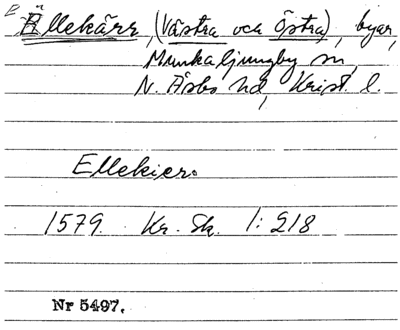 Ellekärr, (Västra och Östra), byar,
Munkaljungby sn,
N. Åsbo hd, Krist. l.
Ellekier.
1579. Kr. Sk. 1:218
Nr 5497.